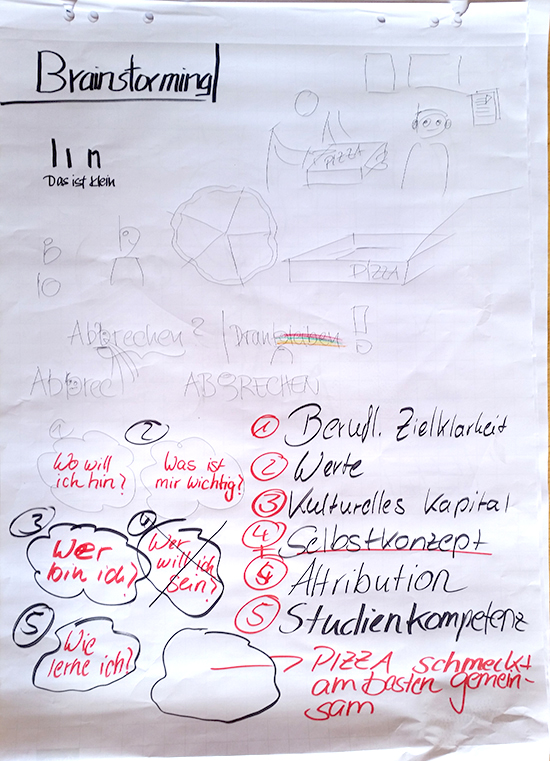 Brainstorming
Das ist klein
PIZZA
PIZZA
Abbrechen?
Dran
!
Abbrec
ABBRECHEN
1
Wo will
ich hin?
2
Was ist
mir wichtig?
3
Wer
bin ich?
4
Wer
will ich
sein?
5
Wie
lerne ich?
1 Berufl. Zielklarheit
2 Werte
3 Kulturelles Kapital
4 Selbstkonzept
Attribution
5 Studienkompetenz
PIZZA schmeckt
am basten gemein-
sam